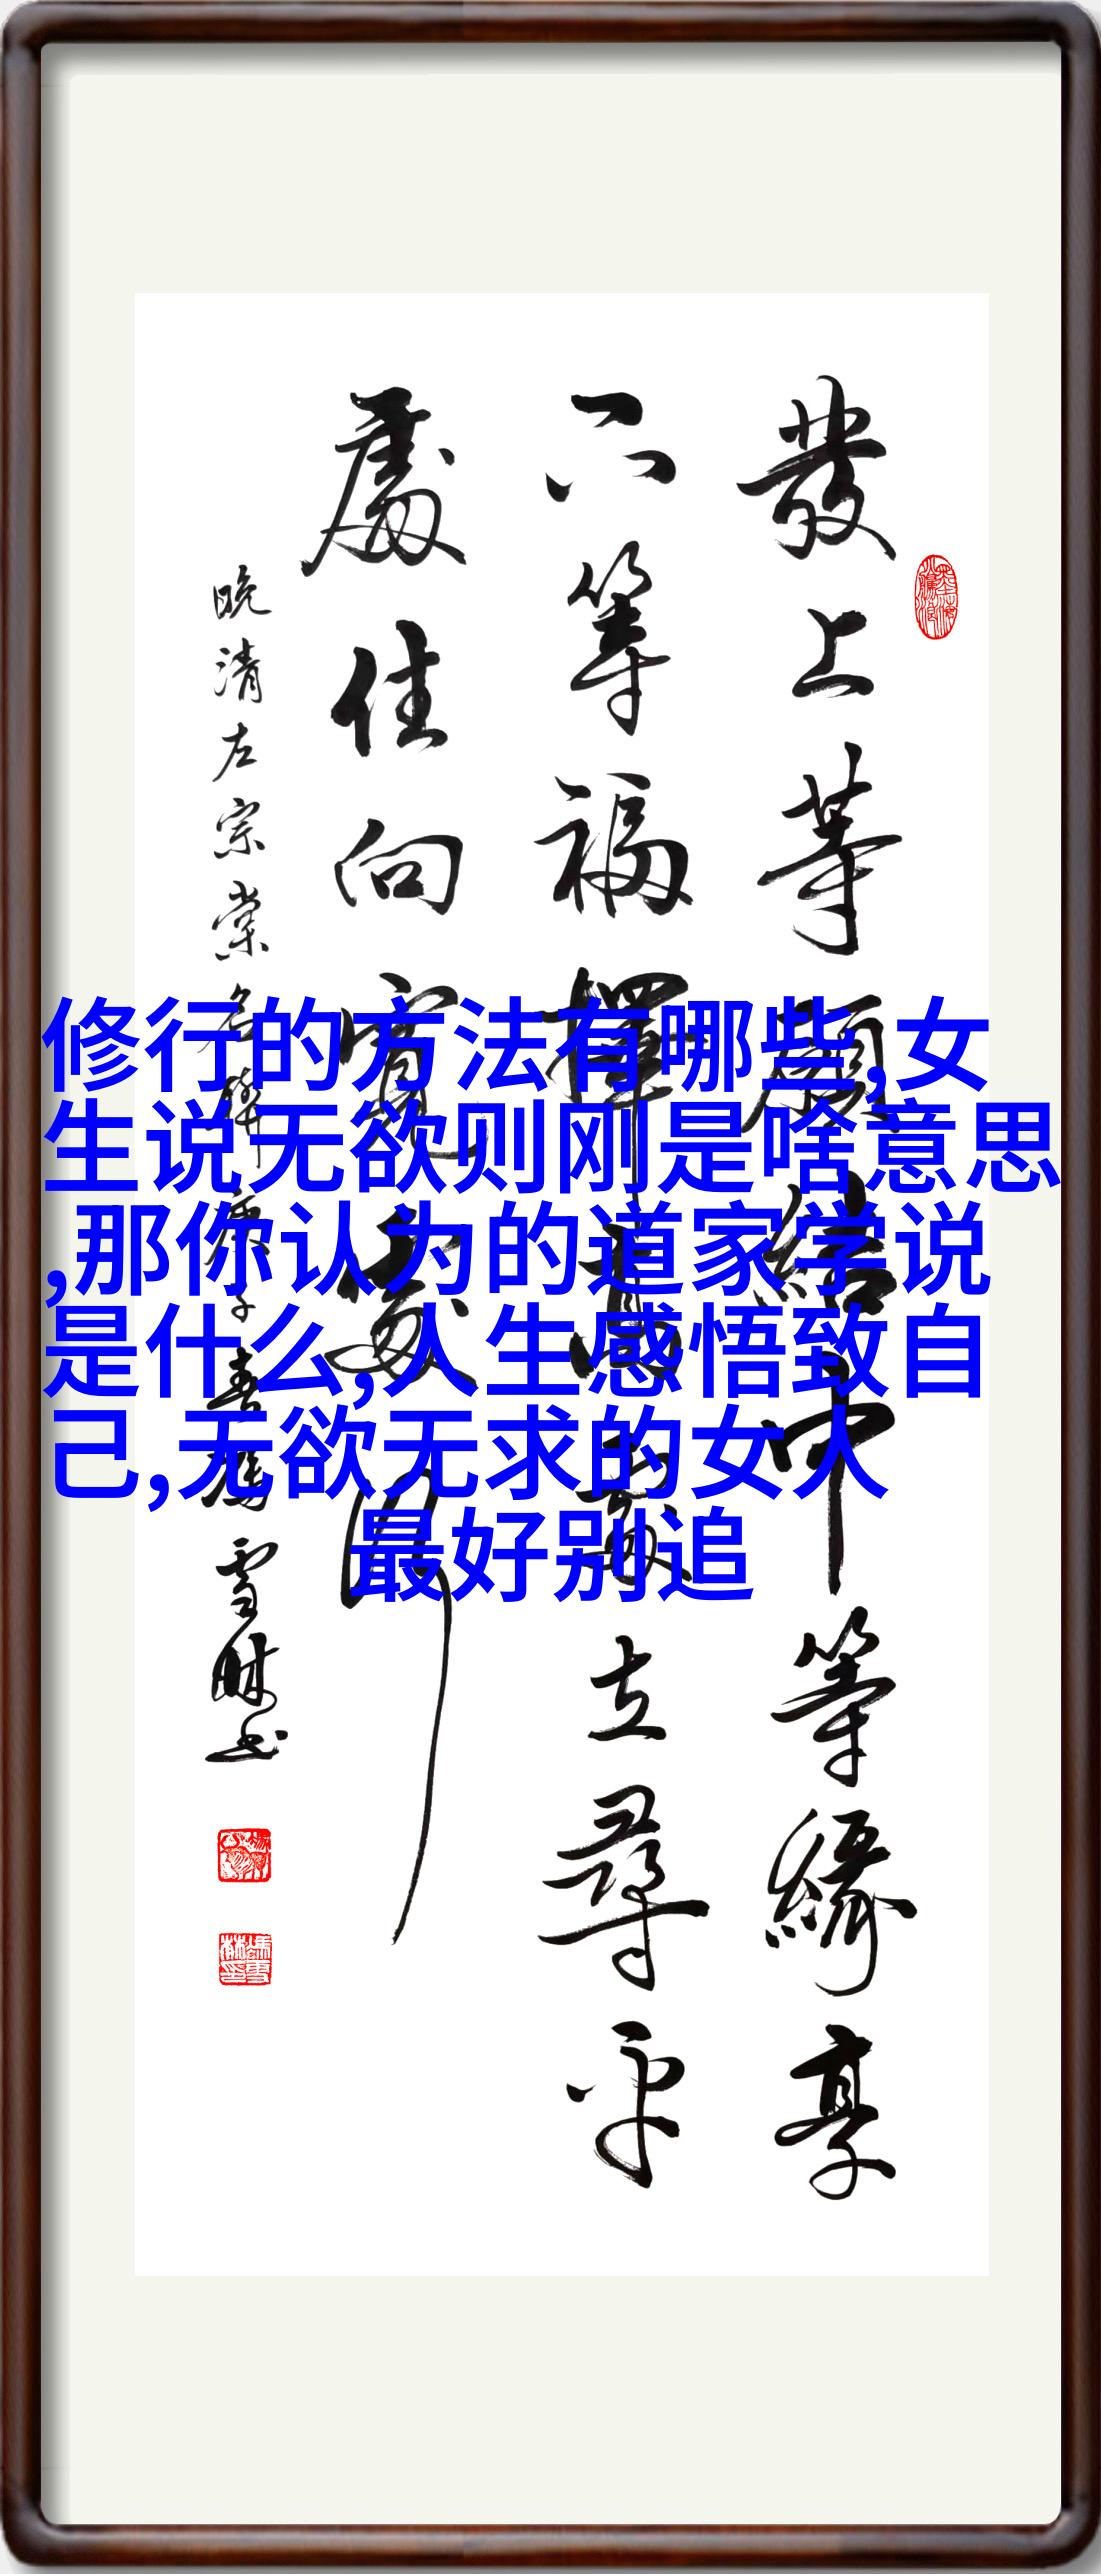 發上等願結中等緣享
下等福擇高處立尋平
處住向寬處行
晚清左宗棠名聯
雪財书
修行的方法有哪些,女
生说无欲则刚是啥意思
,那你认为的道家学说
是什么,人生感悟致自
己,无欲无求的女人
最好别追